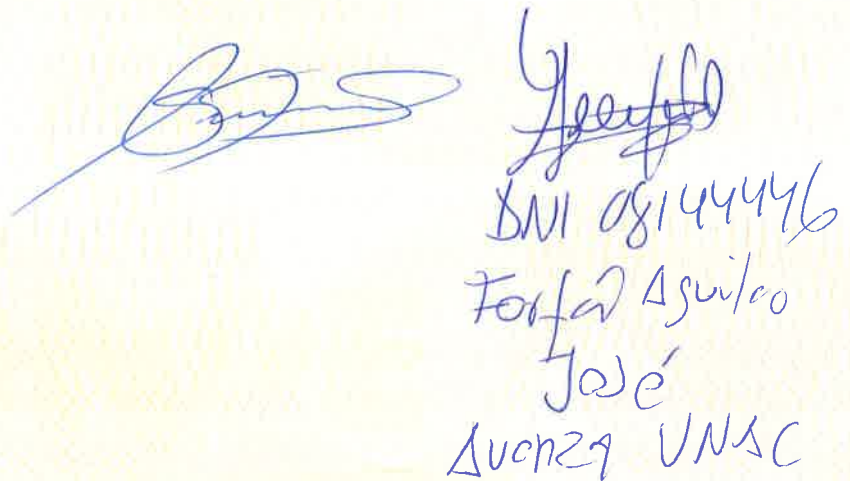 DNI 08144446
Farfán Aguilar
José
Avanza UNAC